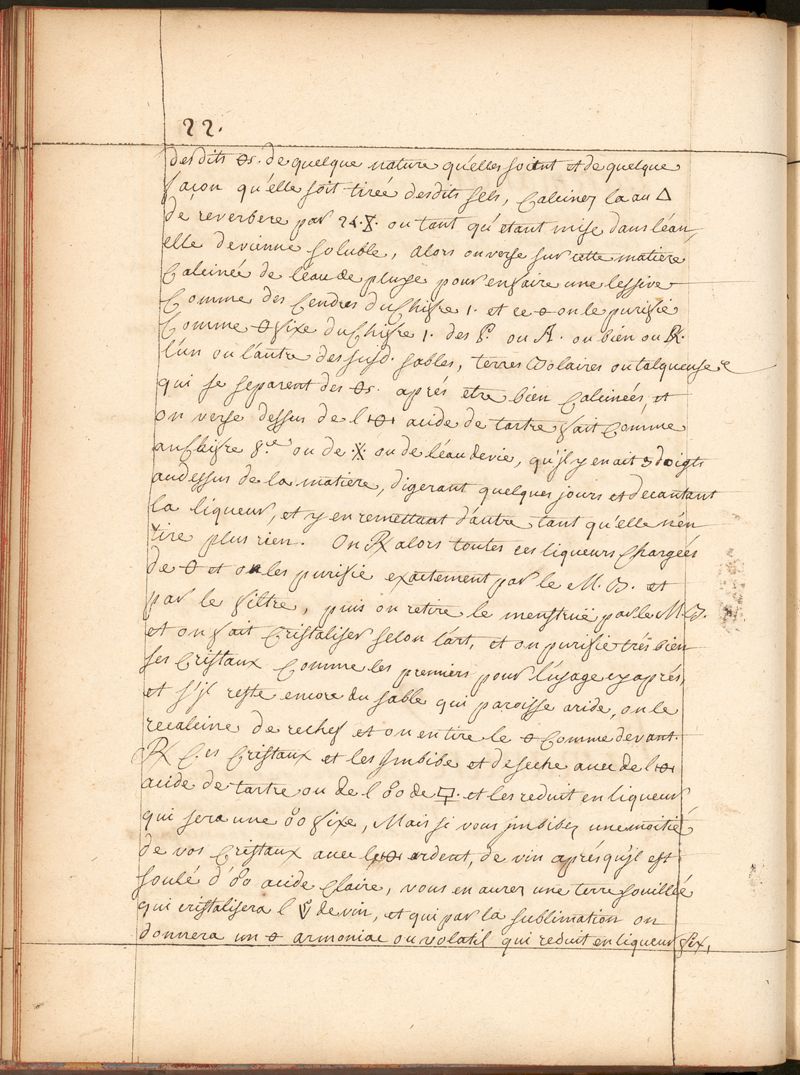 22.
desdits 🜔s. de quelque nature qu'elles soient et de quelque
façon qu'elle soit tirée desdits sels, Calcinez la au △
de reverbere par 24. ou tant qu'etant mise dans léau,
elle devienne soluble, alors on verse sur cette matiere
Calcinée de léau de pluye pour en faire une lessive
Comme des Cendres du Chifre 1. et ce 🜔 on le purifie
Comme 🜔 fixe du Chifre 1. des P. ou A. ou bien ou R.
l'un ou l'autre des susd. sables, terres Solaires ou talqueuse
qui se separent des 🜔s. aprés etre bien Calcinées, et
on verse dessus de l acide de tartre fait Comme
au Chifre 8.e ou de ou de léau devie, qu'jl y en ait 3 doigts
audessus de la matiere, digerant quelques jours et decantant
la liqueur, et y en remettant d'autre tant qu'elle n'en
tire plus rien. On ℞ alors toutes ces liqueurs Chargées
de 🜔 et on les purifie exactement par le M. B. et
par le filtre, puis on retire le menstruë par le M.B.
et on fait Cristaliser selon l'art, et on purifie trés bien
ses Cristaux Comme les premiers pour l'usage cy aprés,
et s'jl reste encore du sable qui paroisse aride, on le
recalcine de rechef et on en tire le 🜔 Comme devant.
℞ C.es Cristaux et les jmbibe et deseche avec de l
acide de tartre ou de l o°o de et les reduit en liqueur
qui sera une o°o fixe, Mais si vous jmbibez une moitié
de vos Cristaux avec l ardent, de vin aprés qu'jl est
soulé d'o°o acide Claire, vous en aurez une terre fouillée
qui cristalisera l de vin, et qui par la sublimation on
donnera un 🜔 armoniac ou volatil qui reduit en liqueur fix,